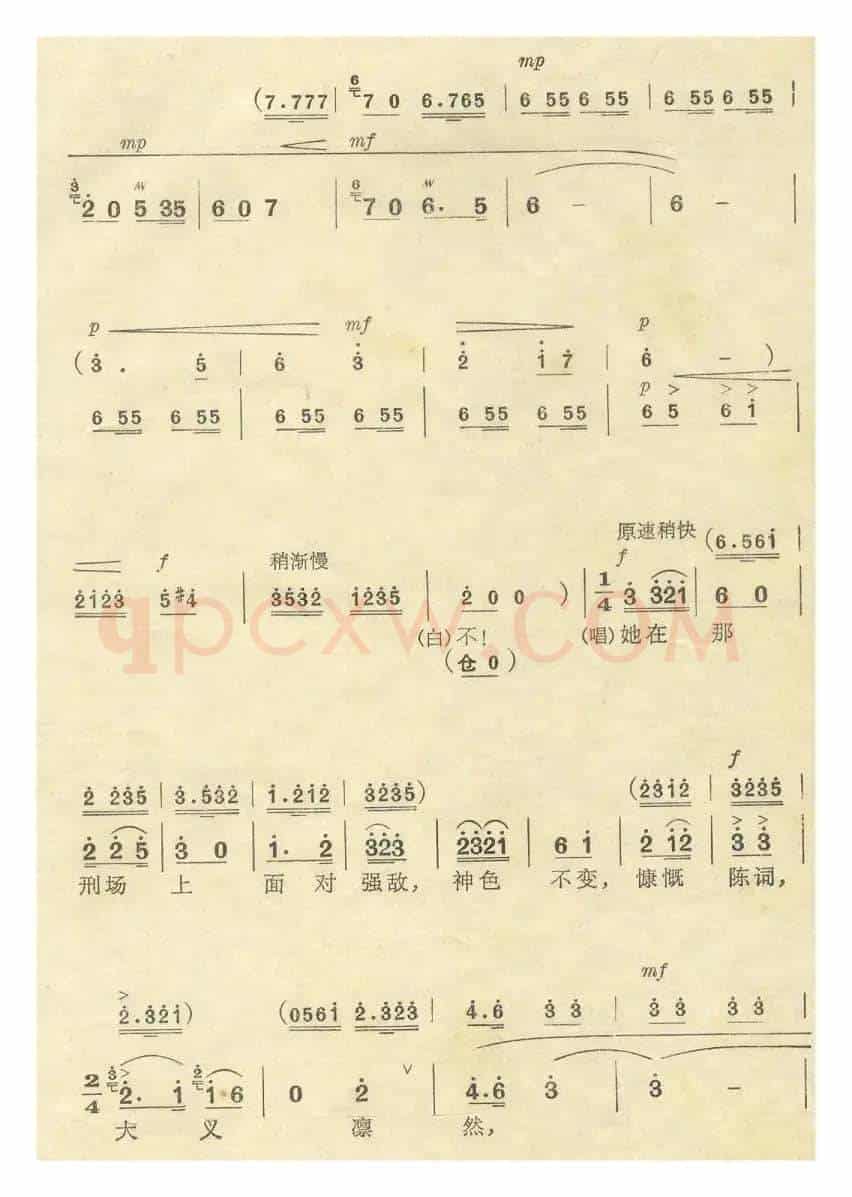 mp
(7.777 | 6 7 0 6.765 | 6 55 6 55 | 6 55 6 55 |
mp mf
3 2 0 5 35 | 6 0 7 | 6 7 0 6. 5 | 6 – | 6 – |
p mf p
(3 . 5 | 6 3 | 2 1 7 | 6 – )
p > > >
6 55 6 55 | 6 55 6 55 | 6 55 6 55 | 6 5 6 1 |
原速稍快 (6.561 |
f 稍渐慢 f
2123 5 #4 | 3532 1235 | 2 0 0 ) | 1/4 3 321 | 6 0 |
(白)不! (唱)她在 那
(仓 0)
qpcxw.com
f
2 235 | 3.532 | 1.212 | 3235) (2312 | 3235 |
2 2 5 | 3 0 | 1. 2 | 323 | 2321 | 6 1 | 2 12 | 3 3 |
刑场 上 面 对 强敌, 神色 不变, 慷慨 陈词,
mf
2.321) (0561 2.323 | 4.6 3 3 | 3 3 3 3 |
2/4 3 2. 1 2 1·6 | 0 2 ∨ | 4.6 3 | 3 – |
大 义 凛 然,